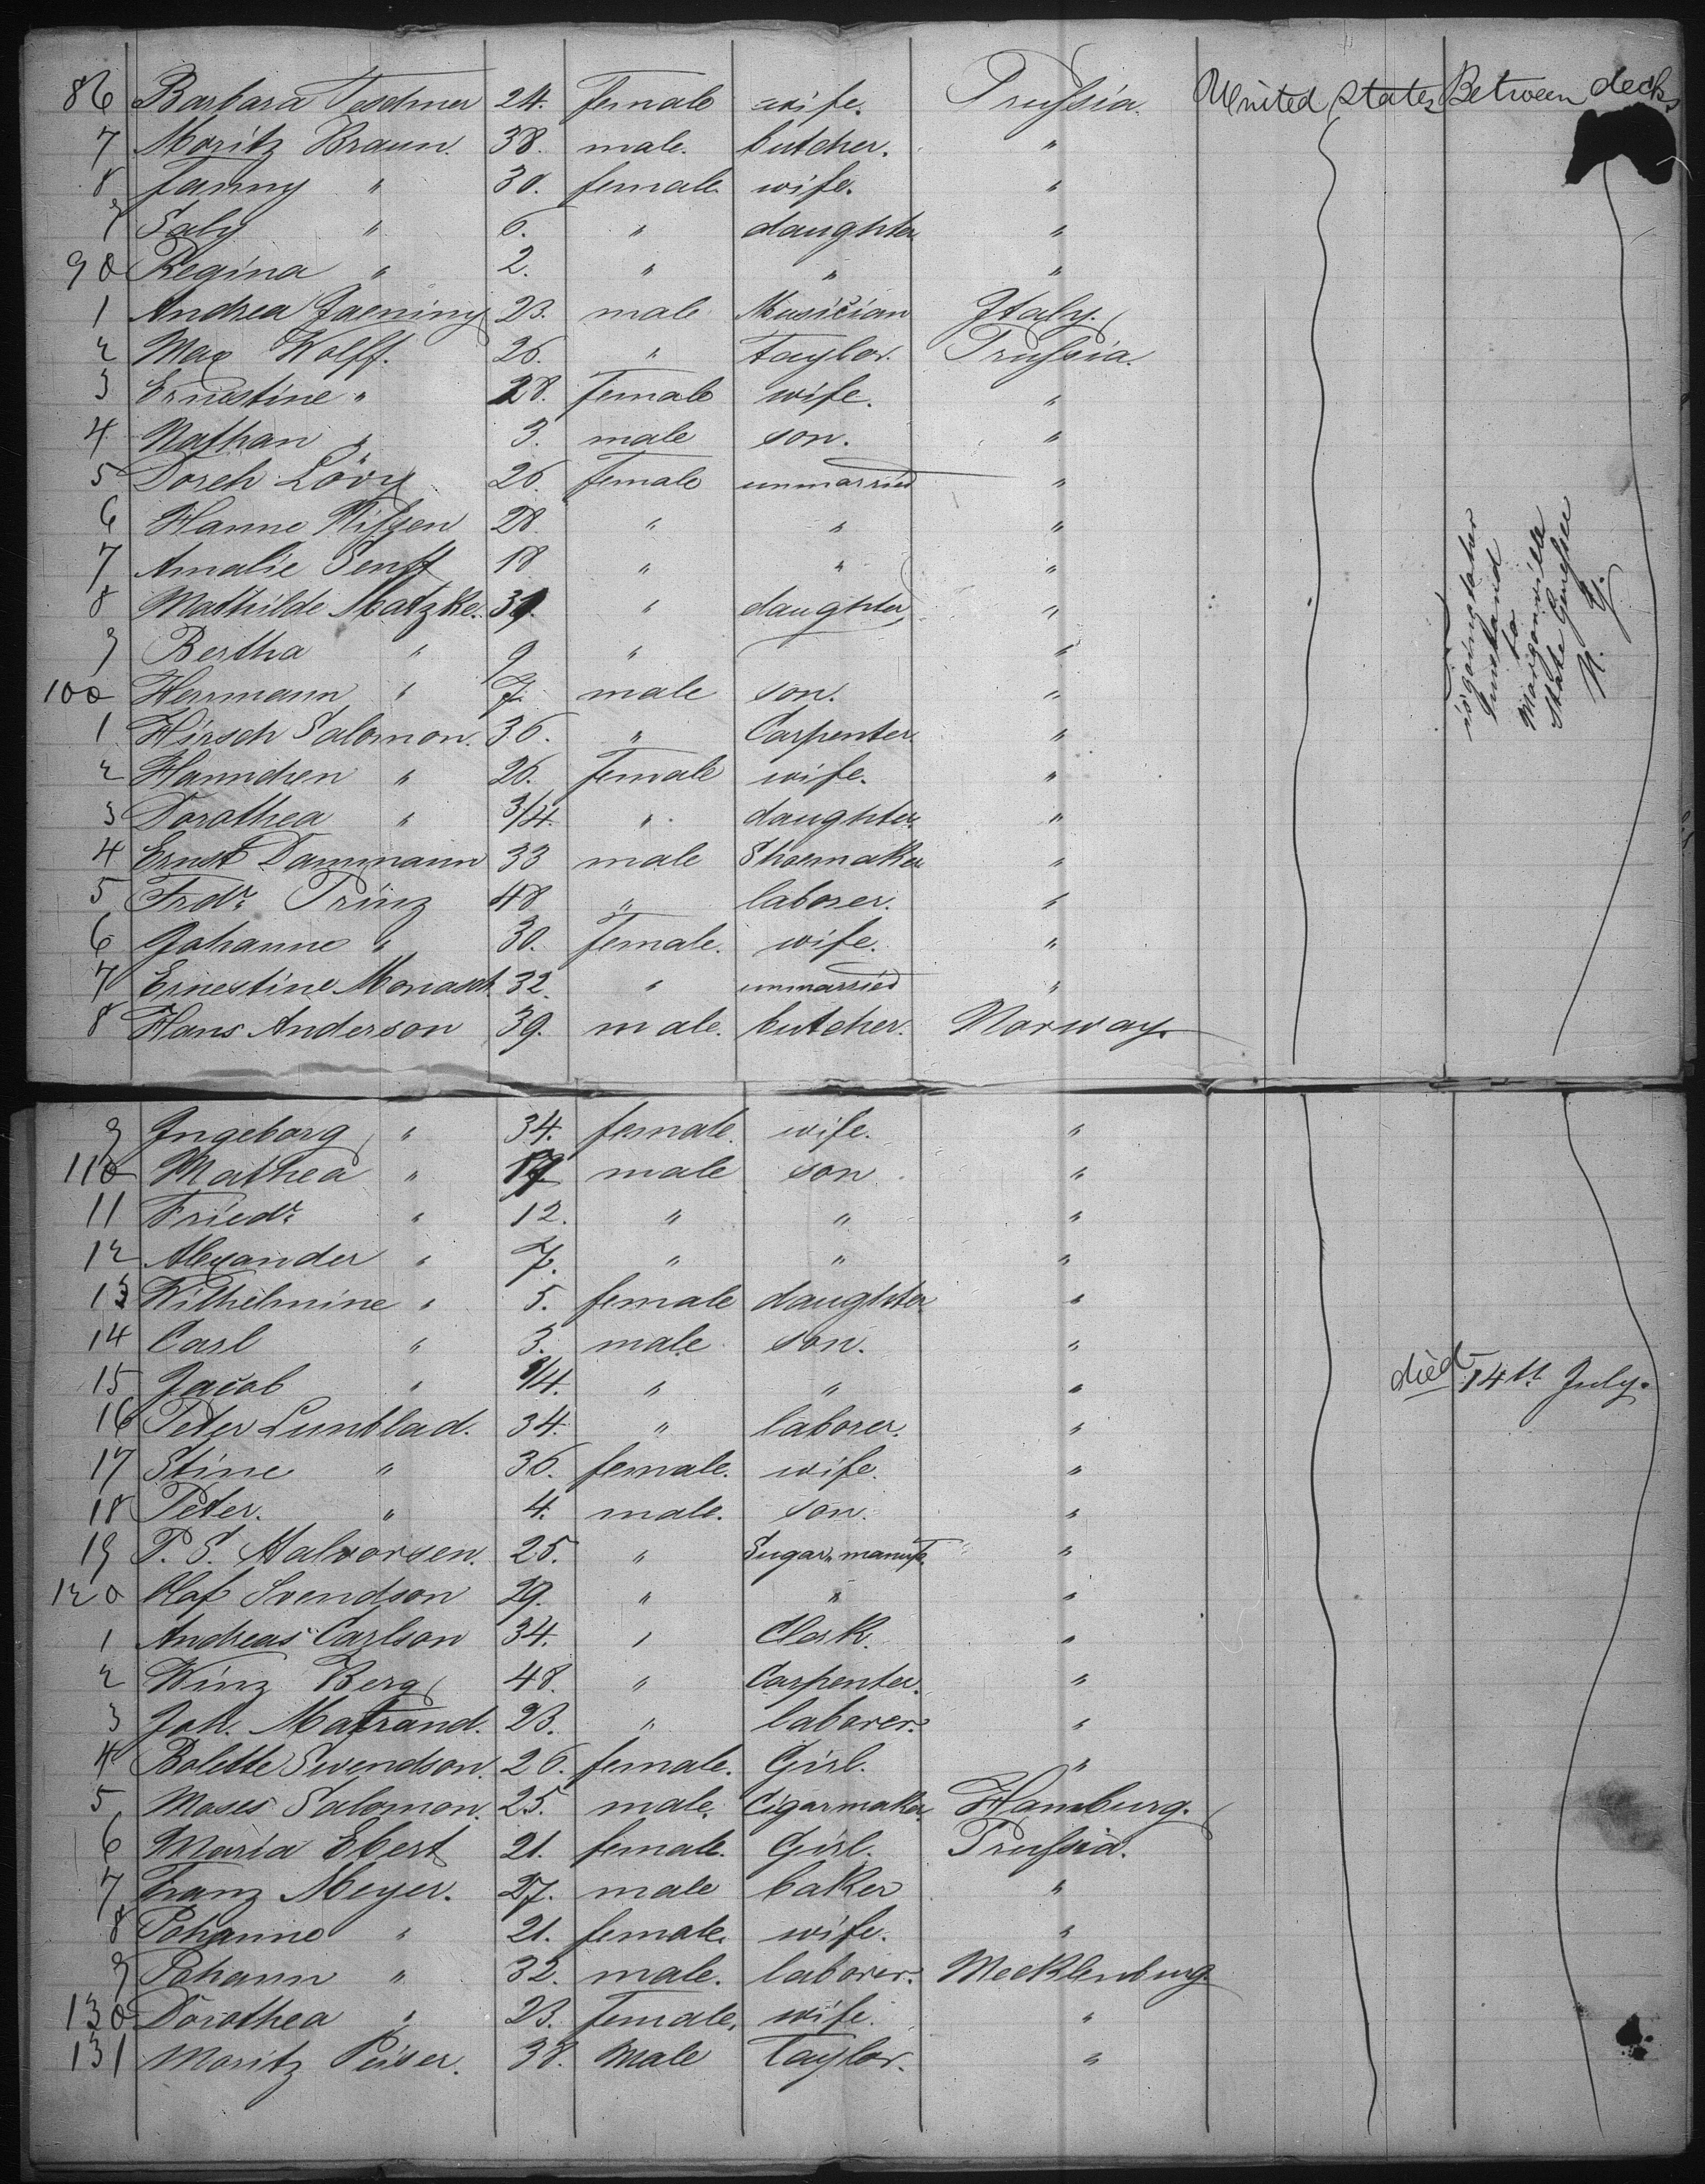 86 Barbara Teschner 24. female wife. Prussia. United States Between decks
7 Moritz Braun. 38. male. butcher. "
8 Fanny " 30. female wife. "
9 Saly " 6. " daughter "
90 Regina " 2. " " "
1 Andrea 23. male Musician Italy.
2 Max Wolff. 26. " Taylor. Prussia.
3 Ernestine " 28. female wife. "
4 Nathan " 3. male son. "
5 Dorch Lövy 26 female unmarried "
6 Hanne 28. " " "
7 Amalie Senff 18 " " "
8 Mathilde Matzke. 31. " daughter "
9 Bertha " 9 " "
100 Herrmann " 7. male son. "
1 Hirsch Salomon. 36. " Carpenter. "
2 Hannchen " 26. female wife. "
3 Dorothea " 3/4. " daughter. "
4 Ernst Dammann 33 male Shoemaker "
5 Fredr. Prinz 48 " laborer. "
6 Johanne " 30. female. wife. "
7 Ernestine Monasch. 32. " unmarried "
8 Hans Anderson 39. male. butcher. Norway.
is going to her
husband
to
Morganville
State Genessee
N. Y.
9 Ingeborg " 34. female. wife. "
110 Mathea " 17 male son "
11 Friedr. " 12. " " "
12 Alexander " 7. " " "
13 Wilhelmine " 5. female daughter "
14 Carl " 3. male son. "
15 Jacob " /4. " " " died 14th July.
16 Peter Lundblad. 34. " laborer. "
17 Stine " 36. female. wife. "
18 Peter. " 4. male. son. "
19 P. S. Halvorsen. 25. " Sugar manuf. "
120 Olaf Svendson 29. " " "
1 Andreas Carlson 34. " Clerk. "
2 Winz Berg 48. " Carpenter. "
3 Joh. Matrand. 23. " laborer. "
4 Bolette Swendson. 26. female. Girl. "
5 Moses Salomon. 25. male. Cigarmaker. Hamburg.
6 Maria Ebert 21. female. Girl. Prussia.
7 Franz Meyer. 27. male baker "
8 Johanne " 21. female. wife. "
9 Johann " 32. male. laborer. Mecklenburg.
130 Dorothea " 23. female. wife. "
131 Moritz Peiser. 38. Male Taylor. "